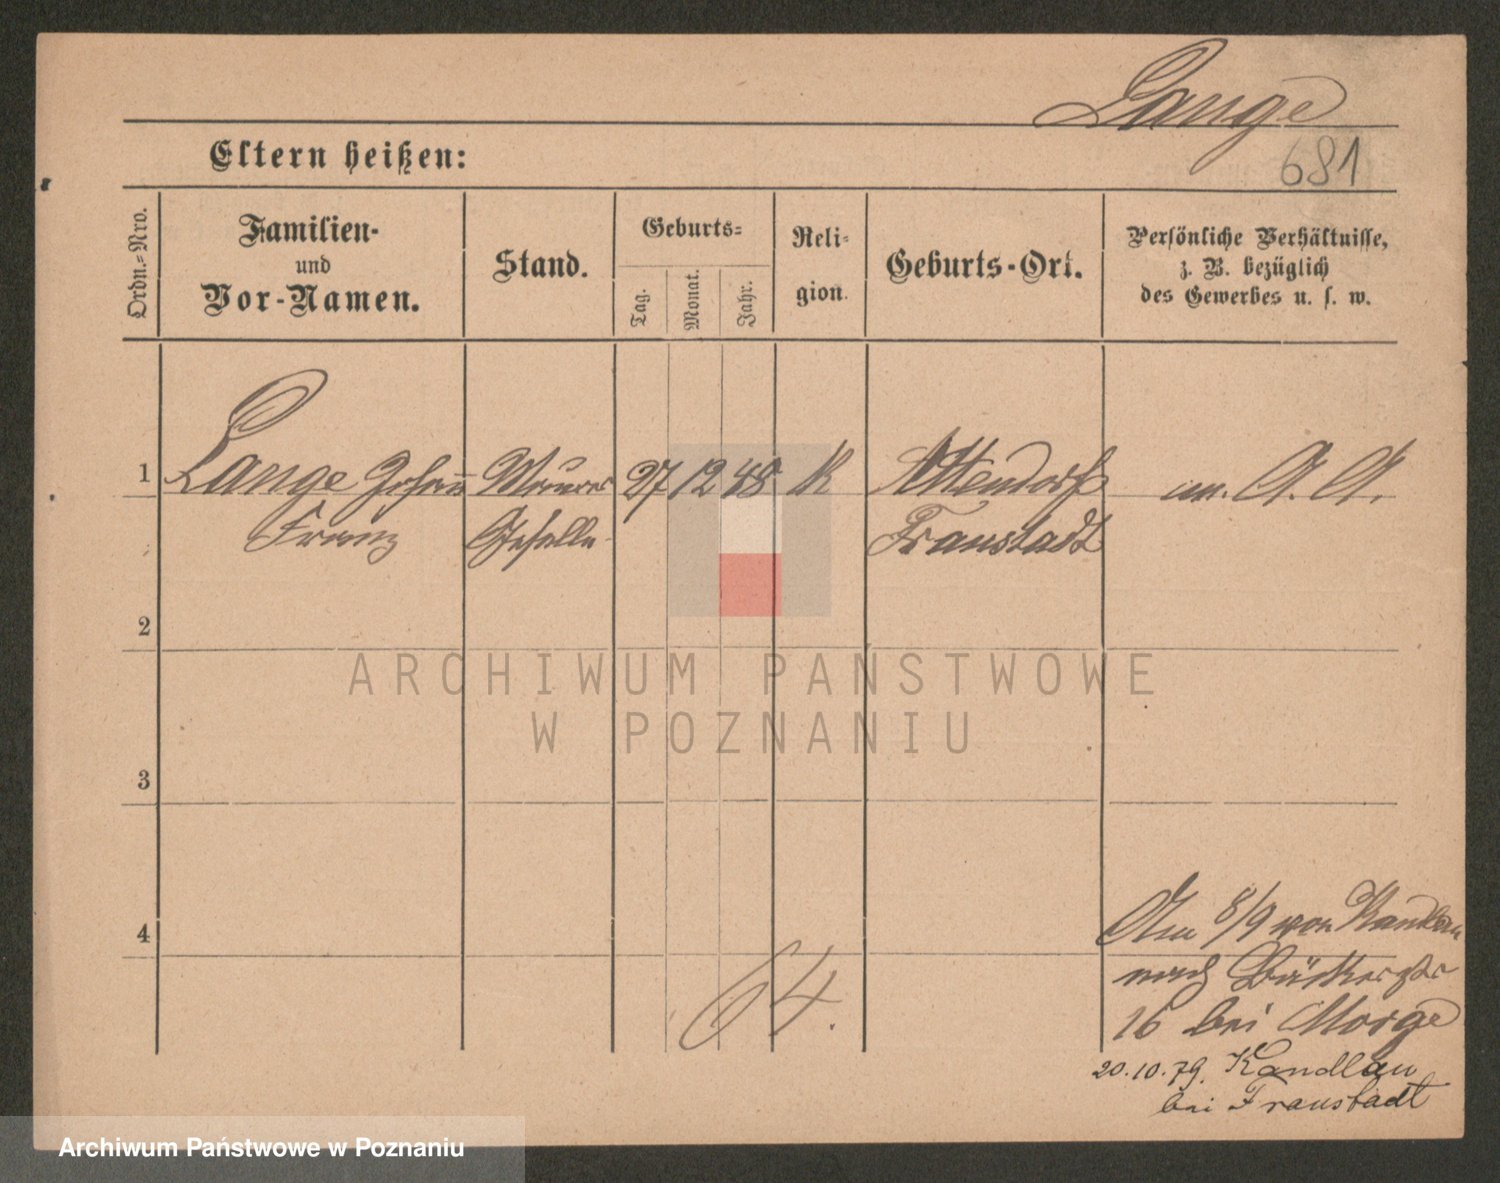 Lange
Eltern heißen:
681
Ordn.=Nro.
Familien-
und
Vor-Namen.
Stand.
Geburts=
Tag.
Monat.
Jahr.
Reli=
gion.
Geburts-Ort.
Persönliche Verhältnisse,
z. B. bezüglich
des Gewerbes u. s. w.
1 Lange Johann Maurer 27 12 48 K Attendorf un. A. A.
Franz Geselle Fraustadt
2
ARCHIWUM PAŃSTWOWE
W POZNANIU
3
4
Am 8/9 von Kandlau
nach Bäckerstr
16 bei Morge
64.
20.10.79. Kandlau
bei Fraustadt
Archiwum Państwowe w Poznaniu